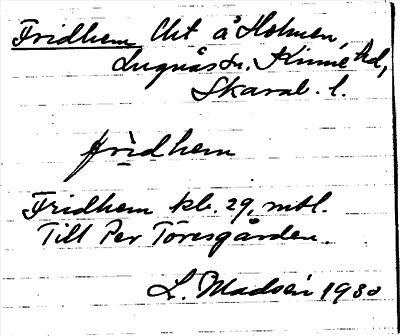 Fridhem Lht å Holmen,
Lugnås sn. Kinne hd,
Skarab. l.
fridhem
Fridhem kb. 29, mtl.
Till Per Töresgården.
L. Madsén 1930